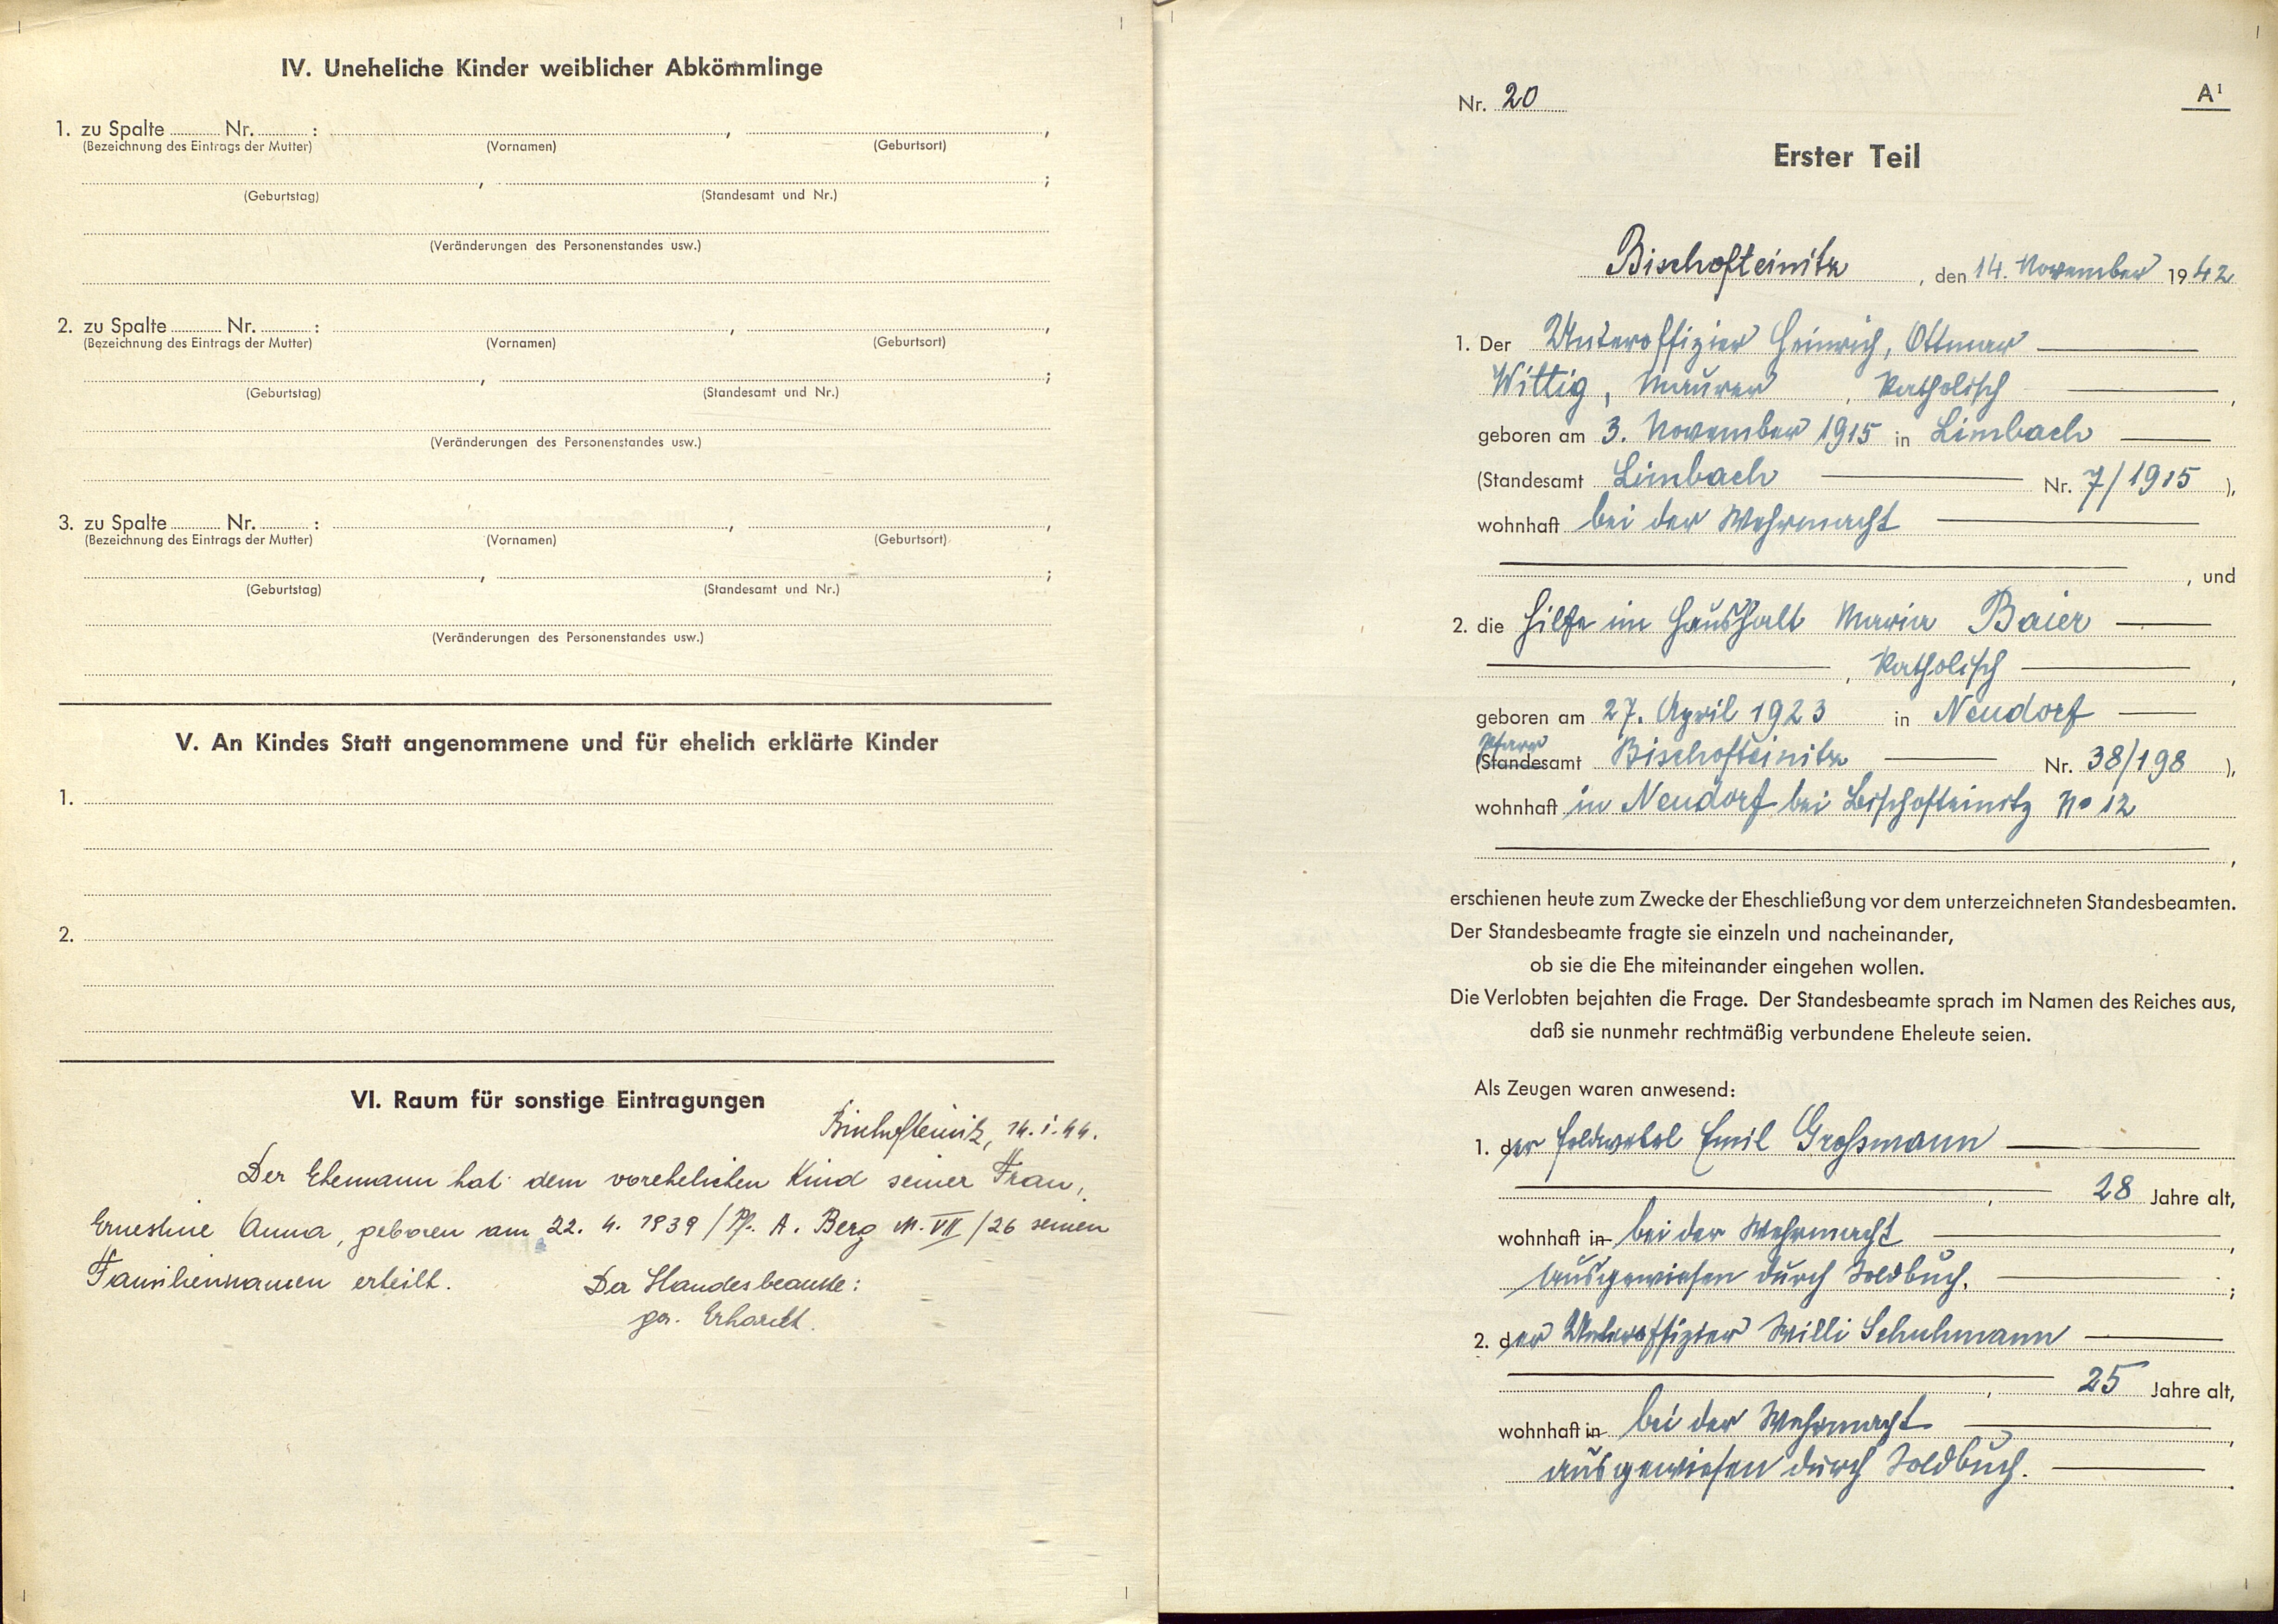 IV. Uneheliche Kinder weiblicher Abkömmlinge
1. zu Spalte ........ Nr. ........ : ........ , ........ ,
(Bezeichnung des Eintrags der Mutter) (Vornamen) (Geburtsort)
........ , ........ ;
(Geburtstag) (Standesamt und Nr.)
(Veränderungen des Personenstandes usw.)
2. zu Spalte ........ Nr. ........ : ........ , ........ ,
(Bezeichnung des Eintrags der Mutter) (Vornamen) (Geburtsort)
........ , ........ ;
(Geburtstag) (Standesamt und Nr.)
(Veränderungen des Personenstandes usw.)
3. zu Spalte ........ Nr. ........ : ........ , ........ ,
(Bezeichnung des Eintrags der Mutter) (Vornamen) (Geburtsort)
........ , ........ ;
(Geburtstag) (Standesamt und Nr.)
(Veränderungen des Personenstandes usw.)
V. An Kindes Statt angenommene und für ehelich erklärte Kinder
1.
2.
VI. Raum für sonstige Eintragungen
Bischofteinitz, 14. I. 44.
Der Ehemann hat dem vorehelichen Kind seiner Frau,
Ernestine Anna, geboren am 22. 4. 1939 / Pf. A. Berg M. VII / 26 seinen
Familiennamen erteilt. Der Standesbeamte:
gez. Erhardt.
Nr. 20 A¹
Erster Teil
Bischofteinitz, den 14. November 1942
1. Der Unteroffizier Heinrich, Ottmar
Wittig, Maurer, katholisch ,
geboren am 3. November 1915 in Limbach
(Standesamt Limbach Nr. 7/1915 ),
wohnhaft bei der Wehrmacht
, und
2. die Hilfe im Haushalt Maria Baier
, katholisch ,
geboren am 27. April 1923 in Neudorf
Pfarr
(Standesamt Bischofteinitz Nr. 38/198 ),
wohnhaft in Neudorf bei Bischofteinitz No 12
,
erschienen heute zum Zwecke der Eheschließung vor dem unterzeichneten Standesbeamten.
Der Standesbeamte fragte sie einzeln und nacheinander,
ob sie die Ehe miteinander eingehen wollen.
Die Verlobten bejahten die Frage. Der Standesbeamte sprach im Namen des Reiches aus,
daß sie nunmehr rechtmäßig verbundene Eheleute seien.
Als Zeugen waren anwesend:
1. der Feldwebel Emil Großmann
, 28 Jahre alt,
wohnhaft in bei der Wehrmacht ,
ausgewiesen durch Soldbuch. ;
2. der Unteroffizier Willi Schuhmann
, 25 Jahre alt,
wohnhaft in bei der Wehrmacht ,
ausgewiesen durch Soldbuch. .